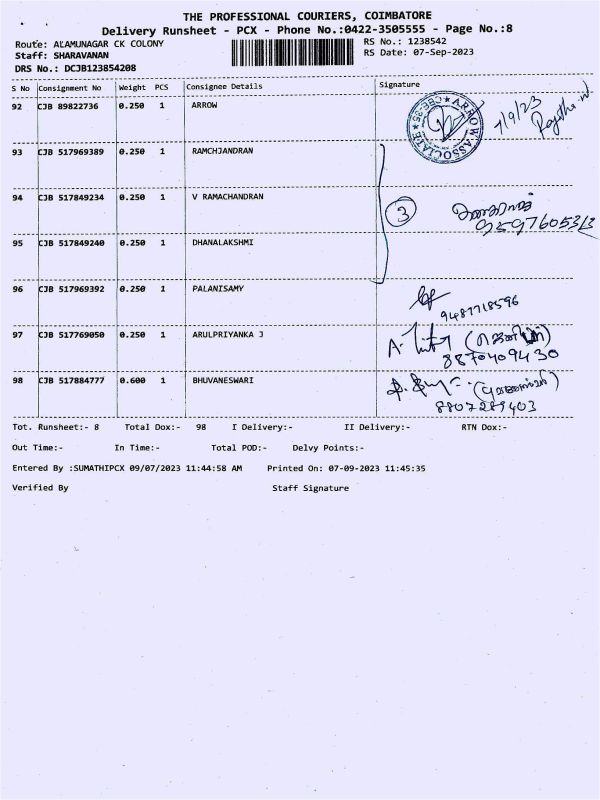 THE PROFESSIONAL COURIERS, COIMBATORE
Delivery Runsheet - PCX - Phone No.:0422-3505555 - Page No.:8
Route: ALAMUNAGAR CK COLONY
RS No.: 1238542
Staff: SHARAVANAN
RS Date: 07-Sep-2023
DRS No.: DCJB123854208
S No Consignment No Weight PCS Consignee Details Signature
92 CJB 89822736 0.250 1 ARROW
ARROW ASSOCIATE CBE-25
7/9/23
93 CJB 517969389 0.250 1 RAMCHJANDRAN
94 CJB 517849234 0.250 1 V RAMACHANDRAN
3
95 CJB 517849240 0.250 1 DHANALAKSHMI
96 CJB 517969392 0.250 1 PALANISAMY
9487718596
97 CJB 517769050 0.250 1 ARULPRIYANKA J
8870409430
98 CJB 517884777 0.600 1 BHUVANESWARI
8807289403
Tot. Runsheet:- 8 Total Dox:- 98 I Delivery:- II Delivery:- RTN Dox:-
Out Time:- In Time:- Total POD:- Delvy Points:-
Entered By :SUMATHIPCX 09/07/2023 11:44:58 AM Printed On: 07-09-2023 11:45:35
Verified By Staff Signature